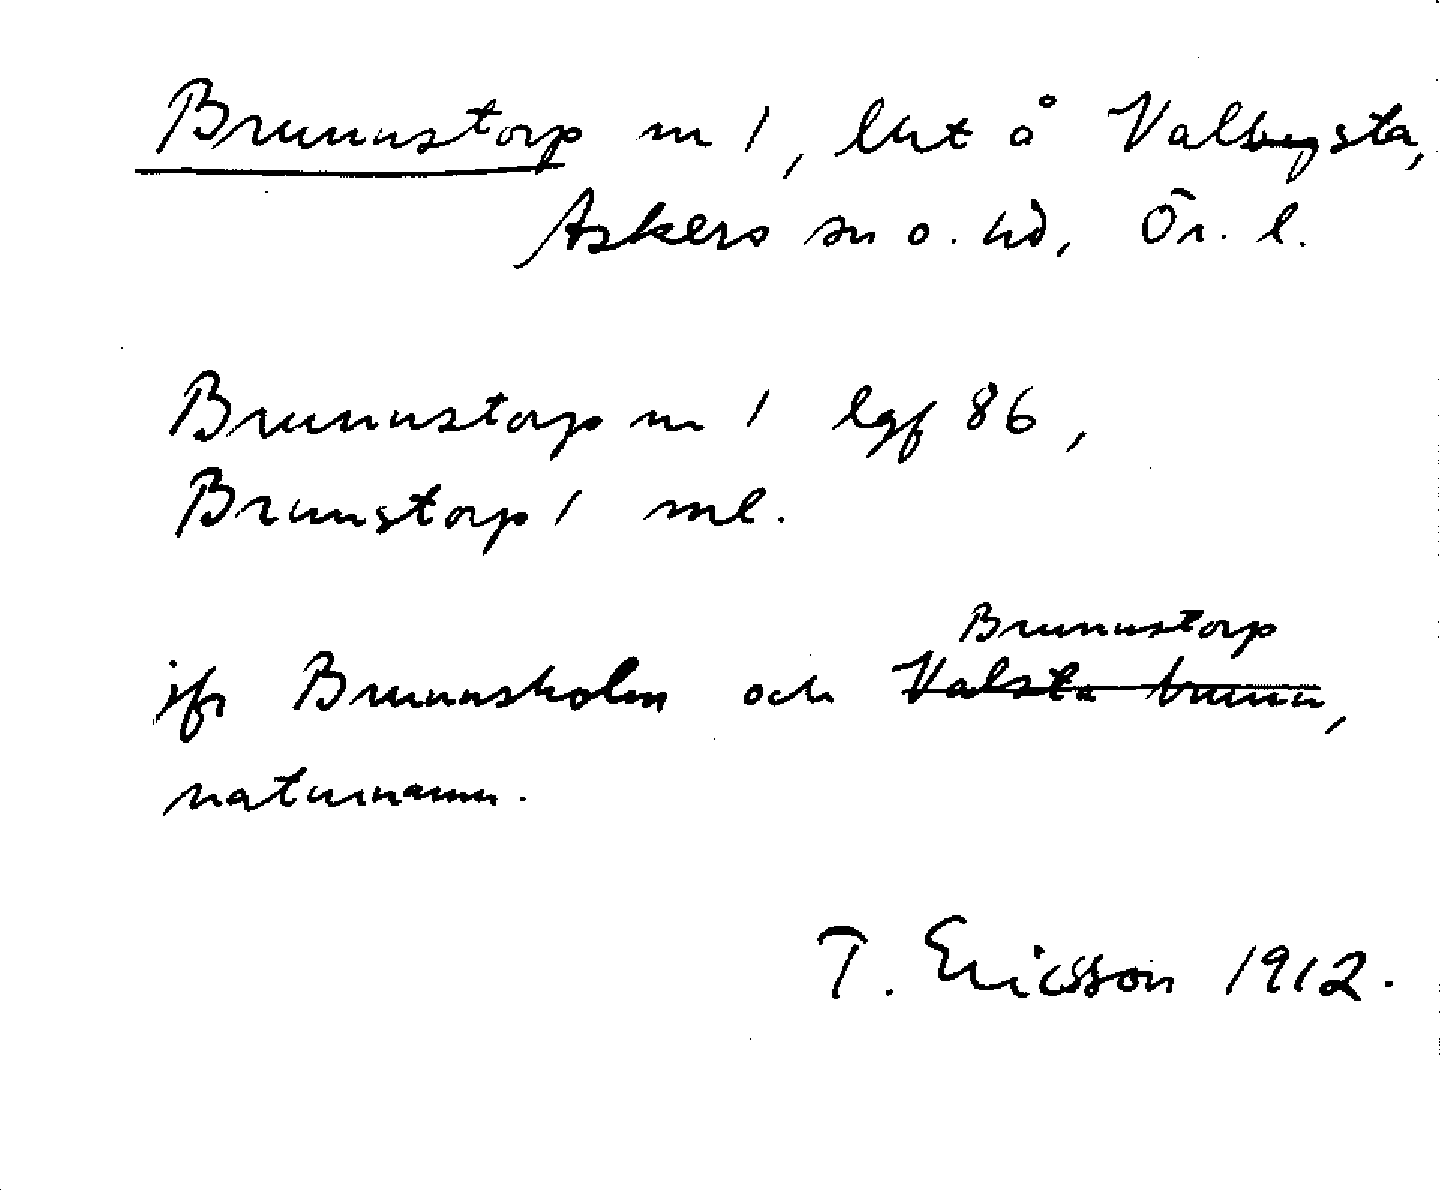 Brunnstorp m 1, lht å Valsta,
Askers sn o. hd, Ör. l.
Brunnstorp m 1 lgf 86,
Brunstorp 1 ml.
Brunnstorp
jfr Brunnsholm och Valsta brunn,
naturnamn.
T. Ericsson 1912.